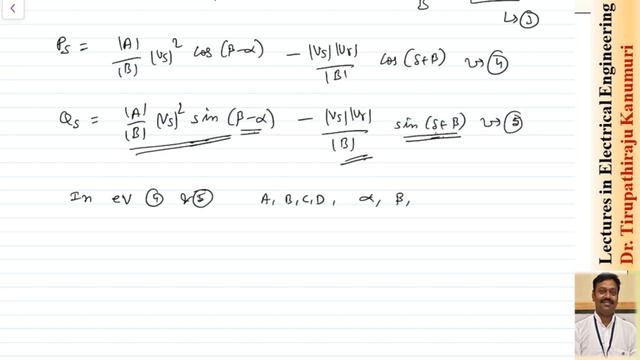 B
↳③
Ps = |A|/|B| |Vs|² cos(β-α) - |Vs||Vr|/|B| cos(δ+β) ↝④
Qs = |A|/|B| |Vs|² sin(β-α) - |Vs||Vr|/|B| sin(δ+β) ↝⑤
In ev ④ & ⑤ A, B, C, D, α, β,
Lectures in Electrical Engineering
Dr. Tirupathiraju Kanumuri